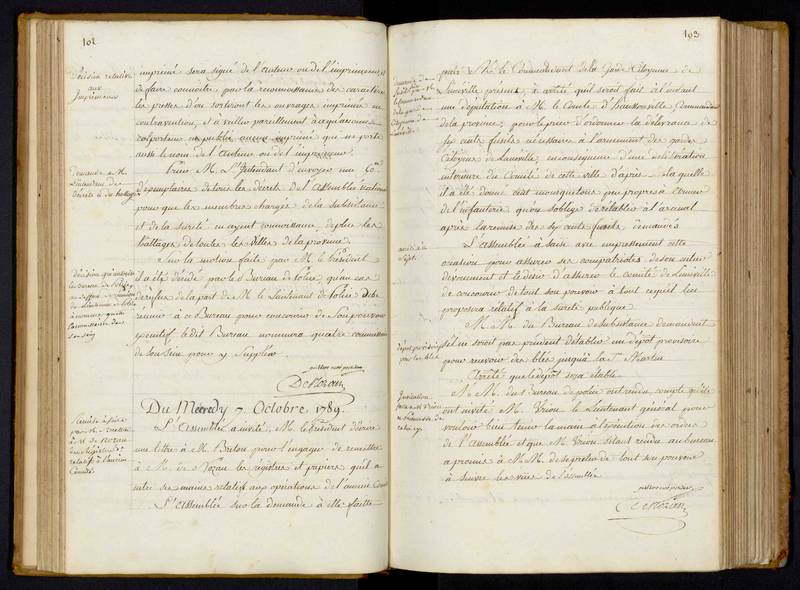 102
Décision relative
aux
Imprimeurs
imprimé sera signé de l'auteur ou de l'imprimeur, et
de faire connoitre, pour la reconnoissance des caractères
les presses d'où sortiront les ouvrages imprimés en
contravention, et à veiller pareillement à ce qu'aucuns
colporteurs ne publie aucun imprimé qui ne porte
aussi le nom de l'auteur ou de l'imprimeur.
Demande à M.
l'intendant de
Décrets
Prier M. l'Intendant d'envoyer un
d'exemplaires de tous les Décrets de l'assemblée nationale
pour que les membres chargés de la subsistance
et de la sureté en ayent connoissance, de plus les
battages de toutes les villes de la province.
Sur la motion faite par M. le Président
il a été décidé par le Bureau de Police, qu'au cas
de refus de la part de M. le Lieutenant de Police de se
réunir à ce Bureau pour concourir de son pouvoir
exécutif, ledit Bureau nommera quatre commissaires
de son sein pour y suppléer.
DeRozan
Du Mercredy 7. Octobre 1789.
L'assemblée a invité M. le Président d'écrire
une lettre à M. Breton pour l'engager de remettre
à M. de Rozan les régistres et papiers qu'il a
entre ses mains relatifs aux opérations de l'ancien Comité
L'assemblée sur la demande à elle faitte
Remise à faire
par M. Breton
à M. de Rozan
des Régistres
relatifs à l'ancien
Comité
103
par M. le Commandant de la Garde Citoyenne de
Lunéville présent, a arrêté qu'il seroit fait à l'instant
une députation à M. le Comte d'haussonville Commandant
de la province, pour le prier d'ordonner la délivrance de
six cents fusils nécessaires à l'armement des gardes
Citoyens de Lunéville, en conséquence d'une délibération
antérieure du Comité de cette ville d'après laquelle
il a été donné cent mousquetons peu propres à armer
de l'infanterie qu'on s'oblige de rétablir à l'arsenal
après la remise des six cents fusils demandés
L'assemblée a saisi avec empressement cette
occasion pour assurer ses compatriotes de son entier
dévouement et le désir d'assurer le comité de Lunéville
de concourir de tout son pouvoir à tout ce qu'il lui
proposera relatif à la sureté publique.
dépôt provisoire
pour les bleds
M. M. du Bureau de subsistance demandent
s'il ne seroit pas prudent d'établir un dépôt provisoire
pour recevoir des bleds jusqu'à la St. Martin
Arrêté que le dépôt sera établi.
Invitation
M. M. du Bureau de police ont rendu compte qu'ils
ont invité M. Urion le Lieutenant général pour
vouloir bien tenir la main à l'exécution des ordres
de l'assemblée et que M. Urion s'étant rendu au bureau
a promis à M. M. de se prêter de tout son pouvoir
à suivre les vues de l'assemblée
DeRozan